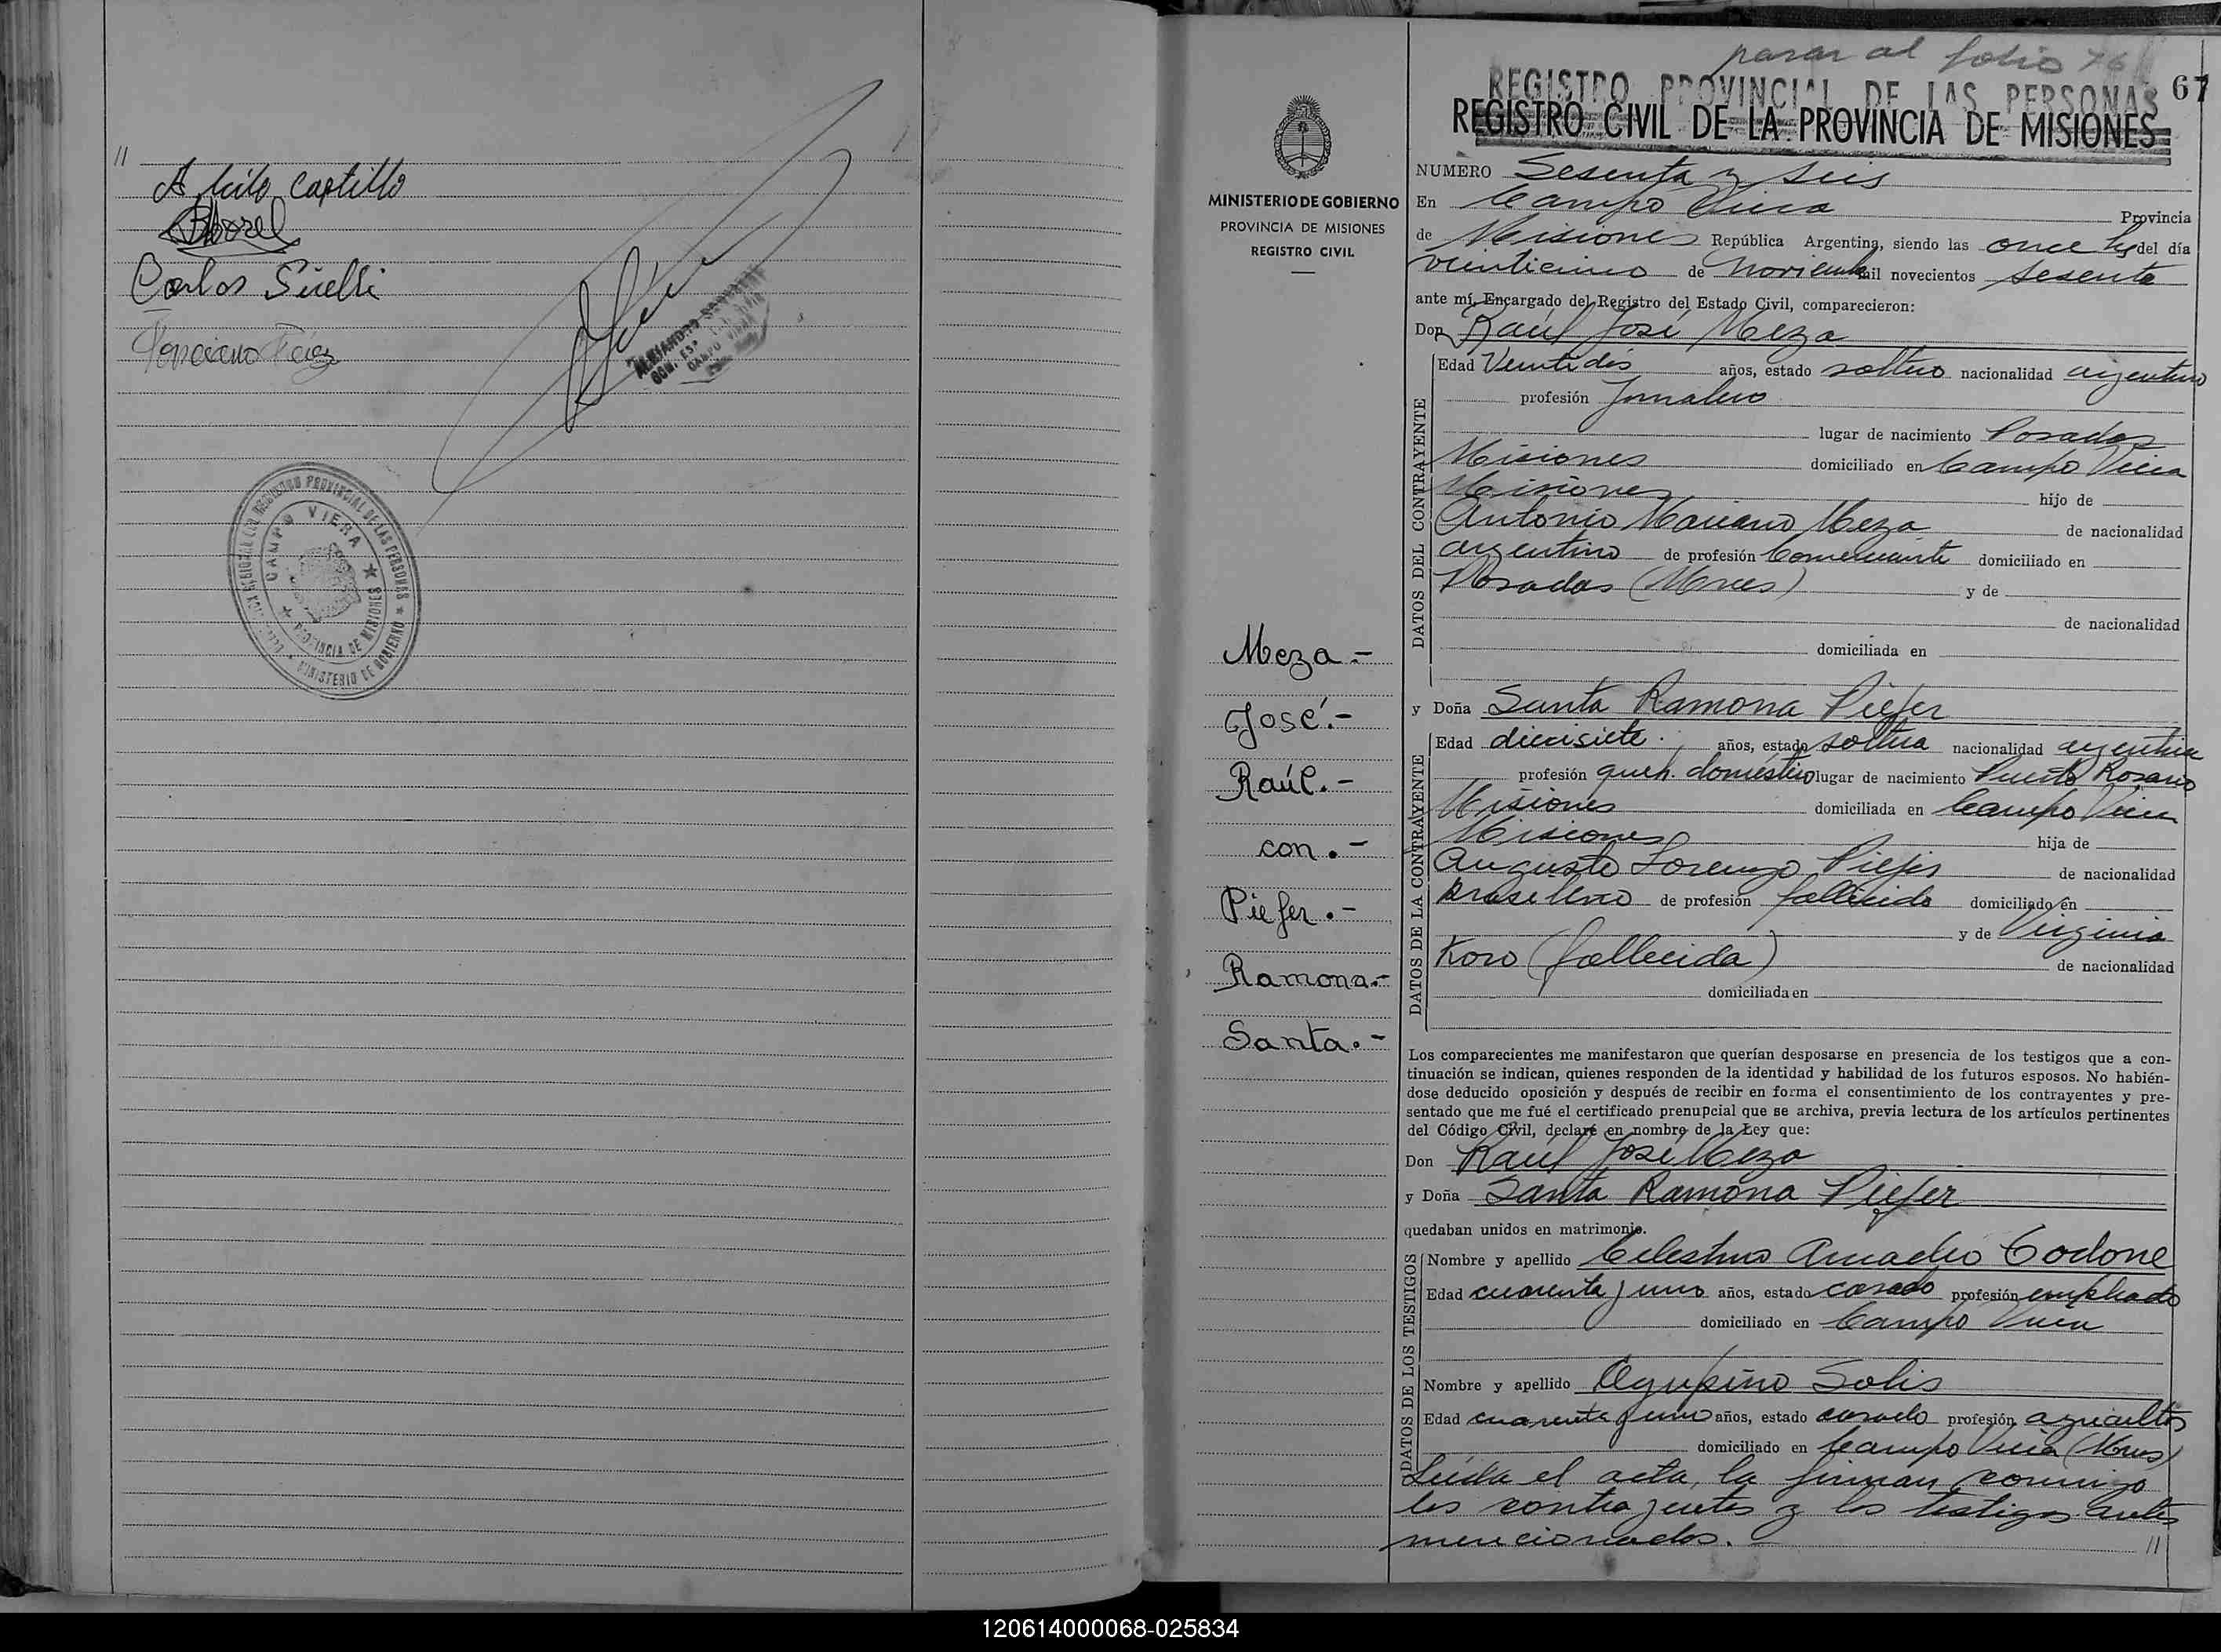 //
Carlos
CAMPO VIERA
PROVINCIA DE MISIONES
MINISTERIO DE GOBIERNO
pasar al folio 76
REGISTRO PROVINCIAL DE LAS PERSONAS
67
REGISTRO CIVIL DE LA PROVINCIA DE MISIONES
MINISTERIO DE GOBIERNO
PROVINCIA DE MISIONES
REGISTRO CIVIL
Meza.-
José.-
Raúl.-
con.-
Piefer.-
Ramona.-
Santa.-
NUMERO Sesenta y seis
En Campo Viera Provincia
de Misiones República Argentina, siendo las once hs del día
veinticinco de Noviembre mil novecientos sesenta
ante mí, Encargado del Registro del Estado Civil, comparecieron:
Don Raúl José Meza
DATOS DEL CONTRAYENTE
Edad Veintidós años, estado soltero nacionalidad argentino
profesión Jornalero
lugar de nacimiento Posadas
Misiones domiciliado en Campo Viera
Misiones hijo de
Antonio Mariano Meza de nacionalidad
argentino de profesión Comerciante domiciliado en
Posadas (Mnes) y de
de nacionalidad
domiciliada en
y Doña Santa Ramona Piefer
DATOS DE LA CONTRAYENTE
Edad diecisiete años, estado soltera nacionalidad argentina
profesión queh. doméstico lugar de nacimiento Puerto Rosario
Misiones domiciliada en Campo Viera
Misiones hija de
Augusto Lorenzo de nacionalidad
brasilero de profesión fallecido domiciliado en
y de Virginia
Koro (fallecida) de nacionalidad
domiciliada en
Los comparecientes me manifestaron que querían desposarse en presencia de los testigos que a con-
tinuación se indican, quienes responden de la identidad y habilidad de los futuros esposos. No habién-
dose deducido oposición y después de recibir en forma el consentimiento de los contrayentes y pre-
sentado que me fué el certificado prenupcial que se archiva, previa lectura de los artículos pertinentes
del Código Civil, declaré en nombre de la Ley que:
Don Raúl José Meza
y Doña Santa Ramona Piefer
quedaban unidos en matrimonio.
DATOS DE LOS TESTIGOS
Nombre y apellido Celestino Amadeo Codone
Edad cuarenta y uno años, estado casado profesión empleado
domiciliado en Campo Viera
Nombre y apellido Agripino Solis
Edad cuarenta y uno años, estado casado profesión agricultor
domiciliado en Campo Viera (Mnes)
Leida el acta, la firman conmigo
los contrayentes y los testigos antes
mencionados. //
120614000068-025834